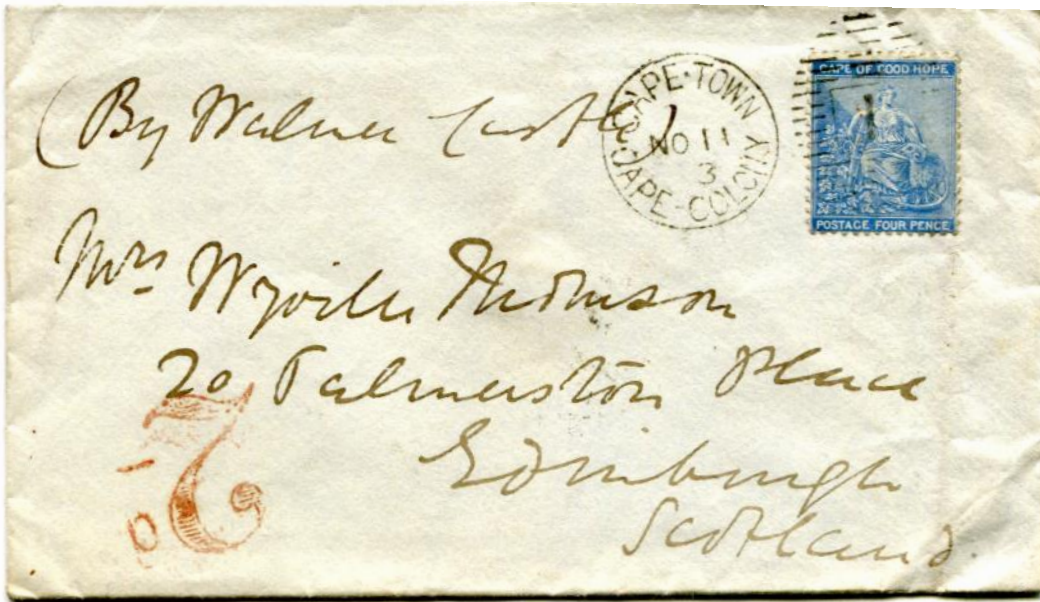 (By Walmer Castle)
CAPE·TOWN
NO 11
3
CAPE-COLONY
CAPE OF GOOD HOPE
1
POSTAGE FOUR PENCE
Mrs Wyville Thomson
20 Palmerston Place
Edinburgh
Scotland.
2